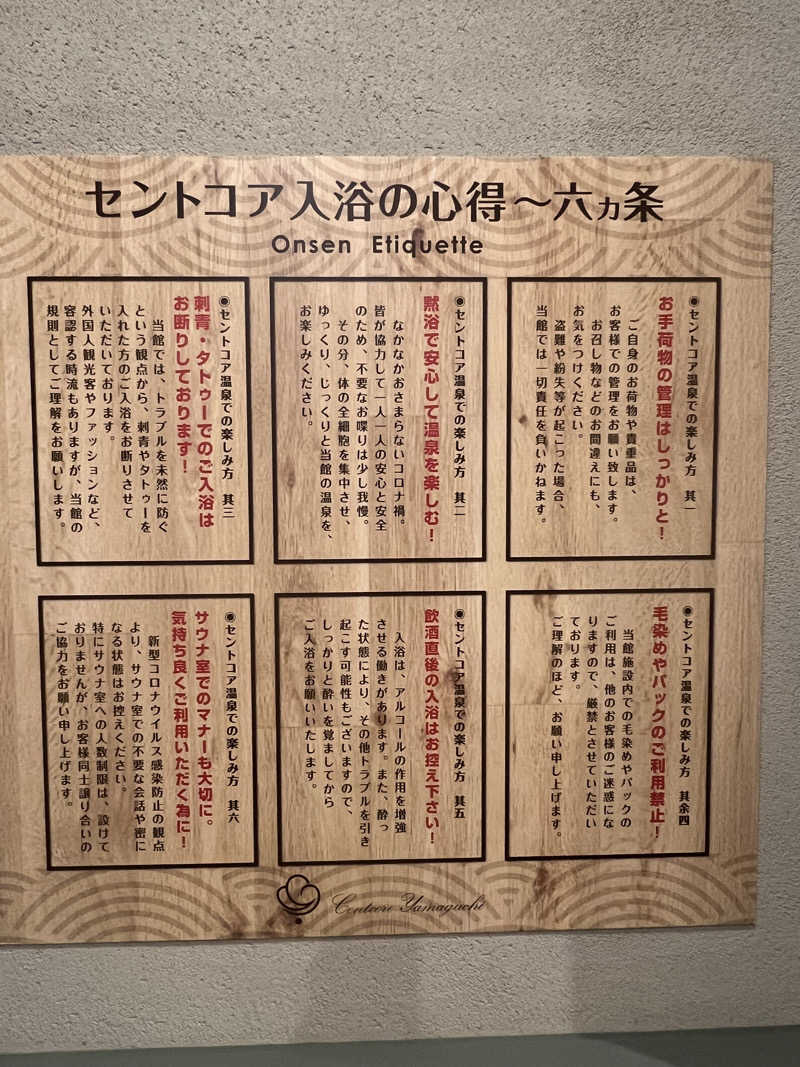 セントコア入浴の心得～六ヵ条
Onsen Etiquette
◉セントコア温泉での楽しみ方 其一
お手荷物の管理はしっかりと！
ご自身のお荷物や貴重品は、
お客様での管理をお願い致します。
お召し物などのお間違えにも、
お気をつけください。
盗難や紛失等が起こった場合、
当館では一切責任を負いかねます。
◉セントコア温泉での楽しみ方 其二
黙浴で安心して温泉を楽しむ！
なかなかおさまらないコロナ禍。
皆が協力して一人一人の安心と安全
のため、不要なお喋りは少し我慢。
その分、体の全細胞を集中させ、
ゆっくり、じっくりと当館の温泉を、
お楽しみください。
◉セントコア温泉での楽しみ方 其三
刺青・タトゥーでのご入浴は
お断りしております！
当館では、トラブルを未然に防ぐ
という観点から、刺青やタトゥーを
入れた方のご入浴をお断りさせて
いただいております。
外国人観光客やファッションなど、
容認する時流もありますが、当館の
規則としてご理解をお願いします。
◉セントコア温泉での楽しみ方 其余四
毛染めやパックのご利用禁止！
当館施設内での毛染めやパックの
ご利用は、他のお客様のご迷惑にな
りますので、厳禁とさせていただい
ております。
ご理解のほど、お願い申し上げます。
◉セントコア温泉での楽しみ方 其五
飲酒直後の入浴はお控え下さい！
入浴は、アルコールの作用を増強
させる働きがあります。また、酔っ
た状態により、その他トラブルを引き
起こす可能性もございますので、
しっかりと酔いを覚ましてから
ご入浴をお願いいたします。
◉セントコア温泉での楽しみ方 其六
サウナ室でのマナーも大切に。
気持ち良くご利用いただく為に！
新型コロナウイルス感染防止の観点
より、サウナ室での不要な会話や密に
なる状態はお控えください。
特にサウナ室への人数制限は、設けて
おりませんが、お客様同士譲り合いの
ご協力をお願い申し上げます。
Centcore Yamaguchi